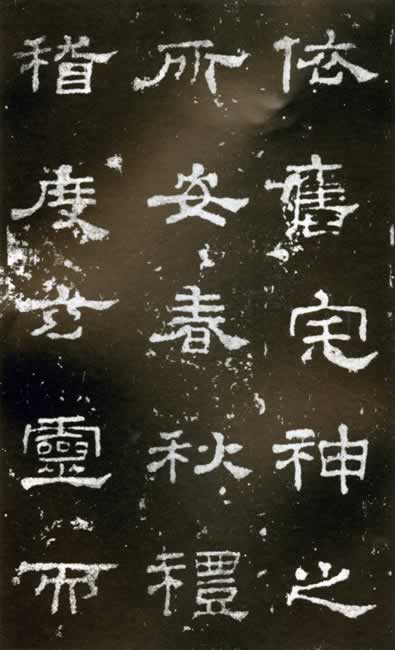 依舊宅神之
所安春秋禮
稽度玄靈而